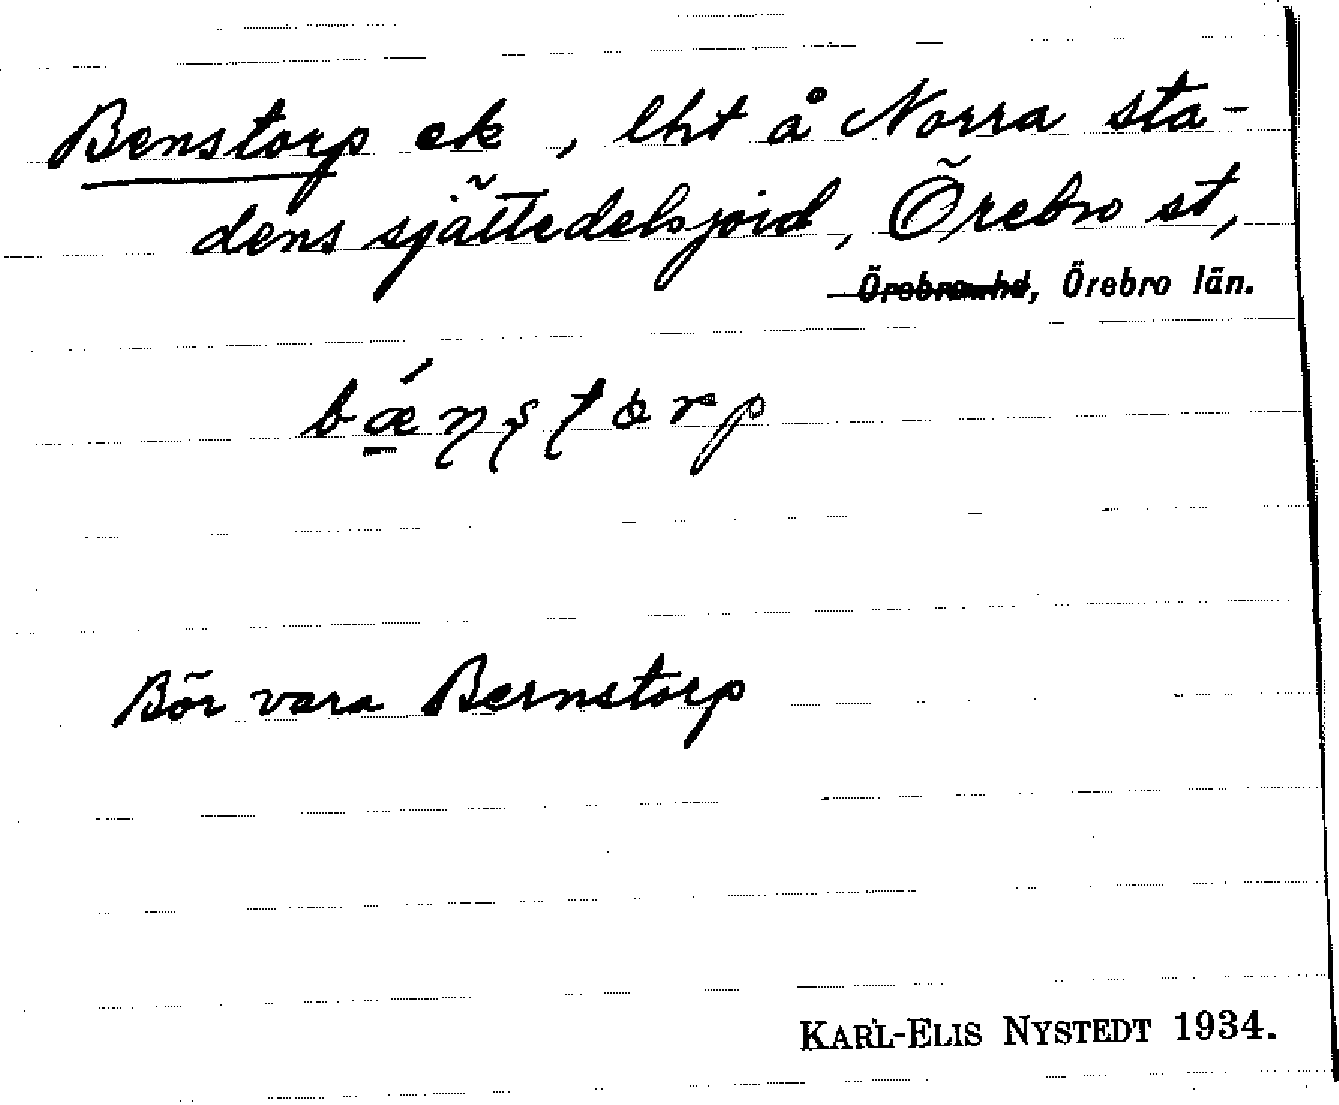 Benstorp ek, lht å Norra sta-
dens sjättedelsjord, Örebro st,
Örebro hd, Örebro län.
bǽnstorp
Bör vara Bernstorp
KARL-ELIS NYSTEDT 1934.